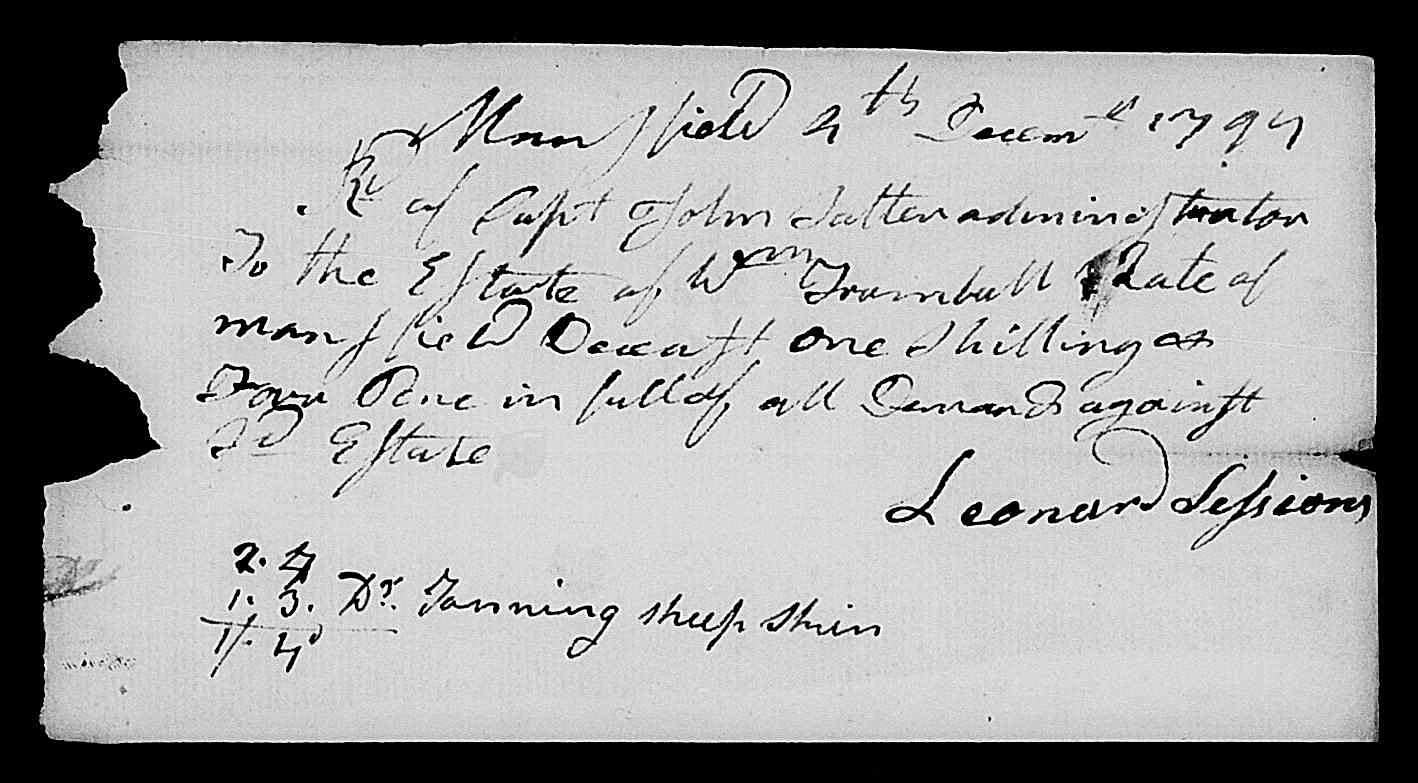 Mansfield 4th Decemr 1794
Rd of Capt John Salter administrator
To the Estate of Wm Trumbull Late of
mansfield Deceast one Shilling &
Four Penc in full of all Demands against
Sd Estate
Leonard Sessions
2. 4
1. 3. Dr. Tanning sheep skin
1/. 4d